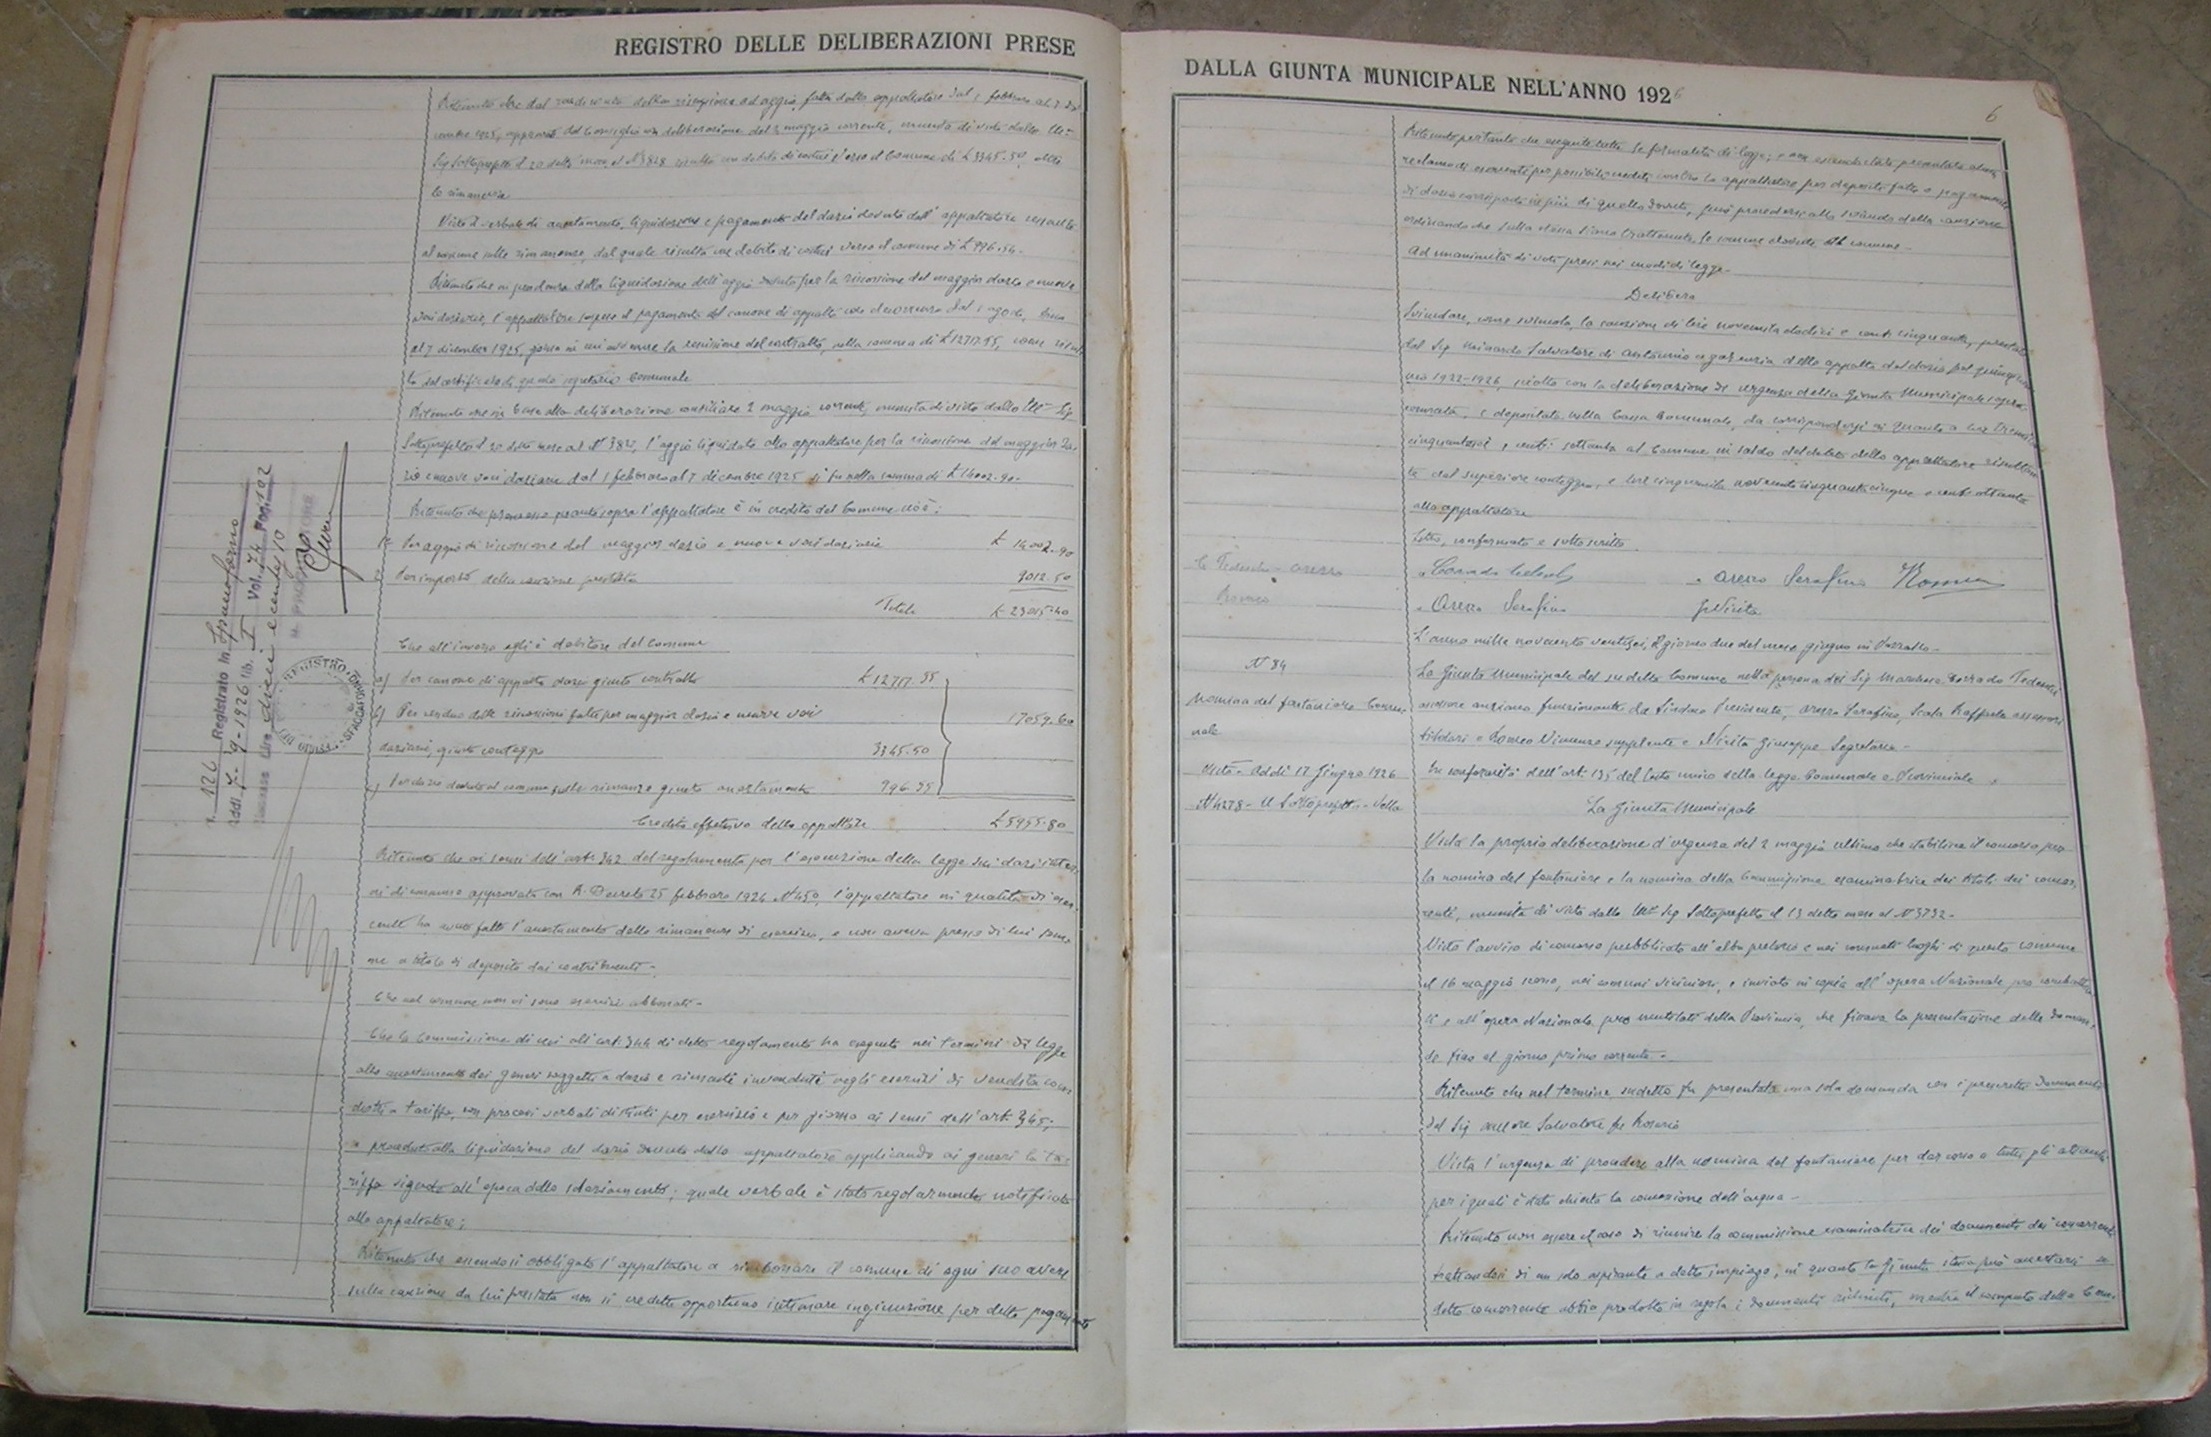 REGISTRO DELLE DELIBERAZIONI PRESE
Ritenuto che dal rendiconto della riscossione ad aggio fatta dallo appaltatore dal 1 febbraio al 7 di-
cembre 1925, approvato dal Consiglio con deliberazione del 2 maggio corrente, munita di visto dallo Ill-
Sig Sottoprefetto il 20 detto mese al N 3828 risulta un debito di costui verso il Comune di £ 3345.50 oltre
le rimanenze
Visto il verbale di accertamento, liquidazione e pagamento del dazio dovuto dall'appaltatore cessante
al comune sulle rimanenze, dal quale risulta un debito di costui verso il comune di £ 996.54.
Ritenuto che in pendenza della liquidazione dell'aggio dovuto per la riscossione del maggior dazio e nuove
voci daziarie, l'appaltatore sospese il pagamento del canone di appalto con decorrenza dal 1 agosto, sino
al 7 dicembre 1925, giorno in cui avvenne la rescissione del contratto, nella somma di £ 12717.55, come risul-
ta dal certificato di questo segretario Comunale
Ritenuto che in base alla deliberazione consiliare 2 maggio corrente, munita di visto dallo Ill- Sig
Sottoprefetto il 20 detto mese al N 382, l'aggio liquidato allo appaltatore per la riscossione del maggior da-
zio e nuove voci daziarie dal 1 febbraio al 7 dicembre 1925 si fu nella somma di £ 14002.90.
Ritenuto che premesso quanto sopra l'appaltatore è in credito del Comune cioè:
Per aggio di riscossione del maggior dazio e nuove voci daziarie £ 14002.90
Per importo della cauzione prestata 9012.50
Totale £ 23015.40
Che all'incontro egli è debitore del Comune
a) Per canone di appalto dazi giusto contratto £ 12717.55
b) Per rendiconto delle riscossioni fatte per maggior dazio e nuove voci 17059.60
daziarie, giusto conteggio 3345.50
Per dazio dovuto al comune sulle rimanenze giusto accertamento 996.55
Credito effettivo dello appaltatore £ 5955.80
Ritenuto che ai sensi dell'art. 342 del regolamento per l'esecuzione della legge sui dazi inter-
ni di consumo approvato con R. Decreto 25 febbraio 1924 N 450, l'appaltatore in qualità di eser-
cente ha fatto l'accertamento delle rimanenze di esercizio, e non aveva presso di lui som-
me a titolo di deposito dai contribuenti;
Che nel comune non vi sono esercizi abbonati.
Che la Commissione di cui all'art. 344 di detto regolamento ha eseguito nei termini di legge
allo accertamento dei generi soggetti a dazio e rimasti invenduti negli esercizi di vendita con-
dotti a tariffa, con processi verbali distinti per esercizio e per giorno ai sensi dell'art. 345;
e proceduto alla liquidazione del dazio dovuto dallo appaltatore applicando ai generi la ta-
riffa vigente all'epoca dello sdaziamento; quale verbale è stato regolarmente notificato
allo appaltatore;
Ritenuto che essendosi obbligato l'appaltatore a rimborsare il comune di ogni suo avere
sulla cauzione da lui prestata non si credette opportuno intimare ingiunzione per detto pagamento
N. 126 Registrato in Spaccaforno
addì 7-9-1926 lib. I Vol. 74 Fog. 102
Riscosse Lire dieci e cent. 10
IL PROCURATORE
REGISTRO
SPACCAFORNO
DALLA GIUNTA MUNICIPALE NELL'ANNO 1926
6
Ritenuto pertanto che eseguite tutte le formalità di legge, e non essendo stato presentato alcun
reclamo di esercenti per possibili crediti contro lo appaltatore per depositi fatti o pagamenti
di dazio corrisposti in più di quello dovuto, può procedersi allo svincolo della cauzione
ordinando che sulla stessa siano trattenute le somme dovute al comune.
Ad unanimità di voti presi nei modi di legge
Delibera
Svincolare, come svincola, la cauzione di lire novemila dodici e cent. cinquanta, prestata
dal Sig. Salvatore di Antonino a garanzia dello appalto del dazio pel quinquen-
nio 1922-1926, sciolto con la deliberazione di urgenza della Giunta Municipale sopra
cennata, e depositata nella Cassa Comunale, da corrispondersi in quanto a lire tremila
cinquantasei e cent. settanta al Comune in saldo del debito dello appaltatore risultan-
te dal superiore conteggio, e lire cinquemila novecentocinquantacinque e cent. ottanta
allo appaltatore
Letto, confermato e sottoscritto
C. Tedeschi - Arezzo
Romeo
Corrado Tedeschi Arezzo Serafino Romeo
Arezzo Serafino G. Nivita
L'anno mille novecento ventisei, il giorno due del mese giugno in
N 84
La Giunta Municipale del suddetto Comune nelle persone dei Sig. Marchese Corrado Tedeschi
Nomina del fontaniere Comu-
assessore anziano funzionante da Sindaco Presidente, Arezzo Serafino, Scala Raffaele assessori
nale
titolari e Romeo Vincenzo supplente e Nivita Giuseppe Segretario.
Visto - Addì 17 Giugno 1926
In conformità dell'art. 135 del testo unico della legge Comunale e Provinciale,
N 4278 - Il Sottoprefetto - Sella
La Giunta Municipale
Vista la propria deliberazione d'urgenza del 2 maggio ultimo che stabilisce il concorso per
la nomina del fontaniere e la nomina della Commissione esaminatrice dei titoli dei concor-
renti, munita di visto dallo Ill- Sig. Sottoprefetto il 13 detto mese al N 3732.
Visto l'avviso di concorso pubblicato all'albo pretorio e nei consueti luoghi di questo comune
il 16 maggio scorso, nei comuni viciniori, e inviato in copia all'opera Nazionale pro combatten-
ti e all'opera Nazionale pro mutilati della Provincia, che fissava la presentazione delle doman-
de fino al giorno primo corrente.
Ritenuto che nel termine suddetto fu presentata una sola domanda con i prescritti documenti
dal Sig. Salvatore fu Rosario
Vista l'urgenza di procedere alla nomina del fontaniere per dar corso a tutti gli allacci
per i quali è stata chiesta la concessione dell'acqua.
Ritenuto non essere il caso di riunire la commissione esaminatrice dei documenti dei concorrenti
trattandosi di un solo aspirante a detto impiego, in quanto la Giunta stessa può accertarsi se
detto concorrente abbia prodotto in regola i documenti richiesti, mentre il compito della Com-